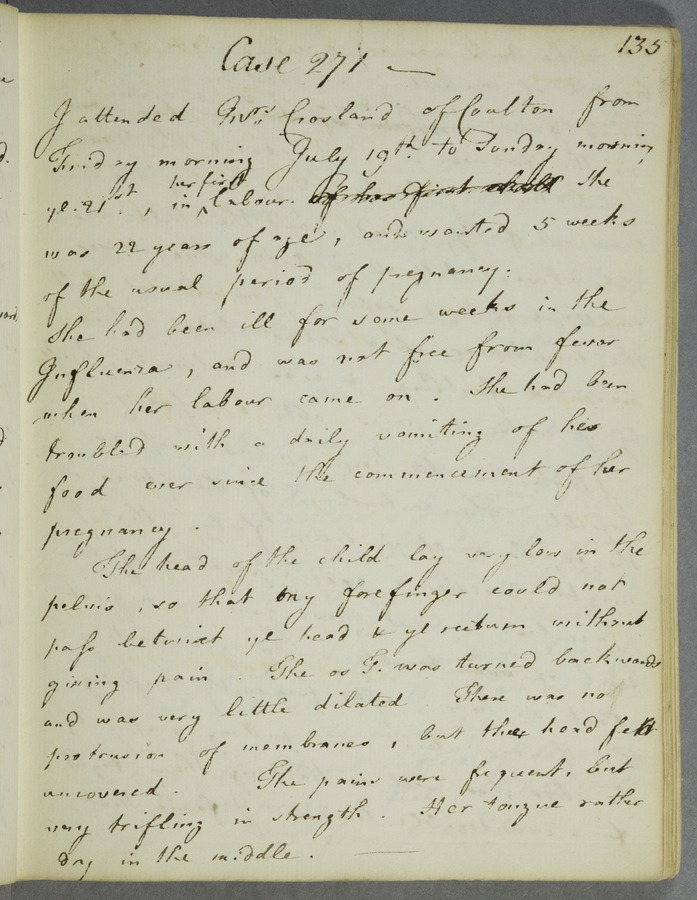 135
Case 271 —
I attended Mrs. Crosland of Coulton from
Friday morning July 19th. to Sunday morning
ye. 21st., in her first labour. of her first child She
was 22 years of age, and wanted 5 weeks
of the usual period of pregnancy.
She had been ill for some weeks in the
Influenza, and was not free from fever
when her labour came on. She had been
troubled with a daily vomiting of her
food ever since the commencement of her
pregnancy.
The head of the child lay very low in the
pelvis, so that my forefinger could not
pass betwixt ye head & ye rectum without
giving pain. The os T. was turned backwards
and was very little dilated. There was no
protrusion of membranes, but the head felt
uncovered. The pains were frequent, but
very trifling in strength. Her tongue rather
dry in the middle. —